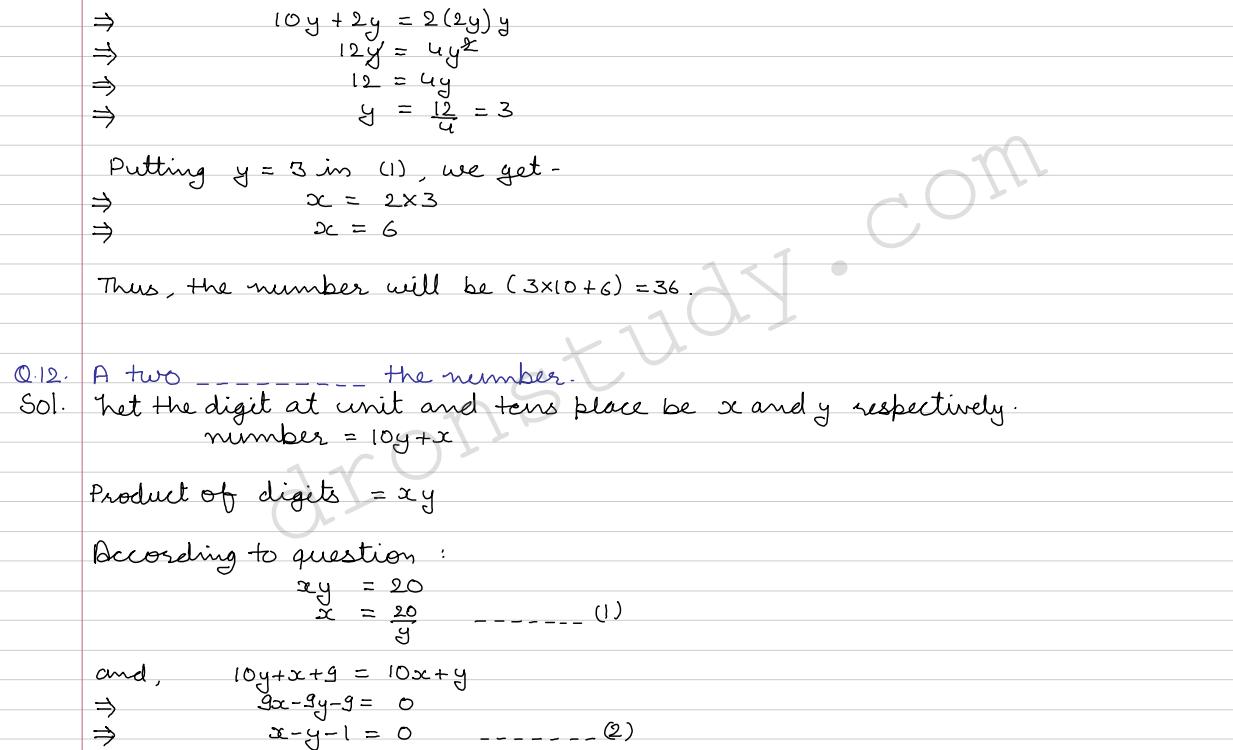 ⇒ 10y + 2y = 2(2y) y
⇒ 12y = 4y²
⇒ 12 = 4y
⇒ y = 12/4 = 3
Putting y = 3 in (1), we get -
⇒ x = 2×3
⇒ x = 6
Thus, the number will be (3×10 + 6) = 36.
Q.12. A two _ _ _ _ _ _ _ _ _ the number.
Sol. Let the digit at unit and tens place be x and y respectively.
number = 10y+x
Product of digits = xy
According to question :
xy = 20
x = 20/y _ _ _ _ _ _ _ (1)
and, 10y+x+9 = 10x+y
⇒ 9x-9y-9 = 0
⇒ x-y-1 = 0 _ _ _ _ _ _ _ (2)
dronstudy.com